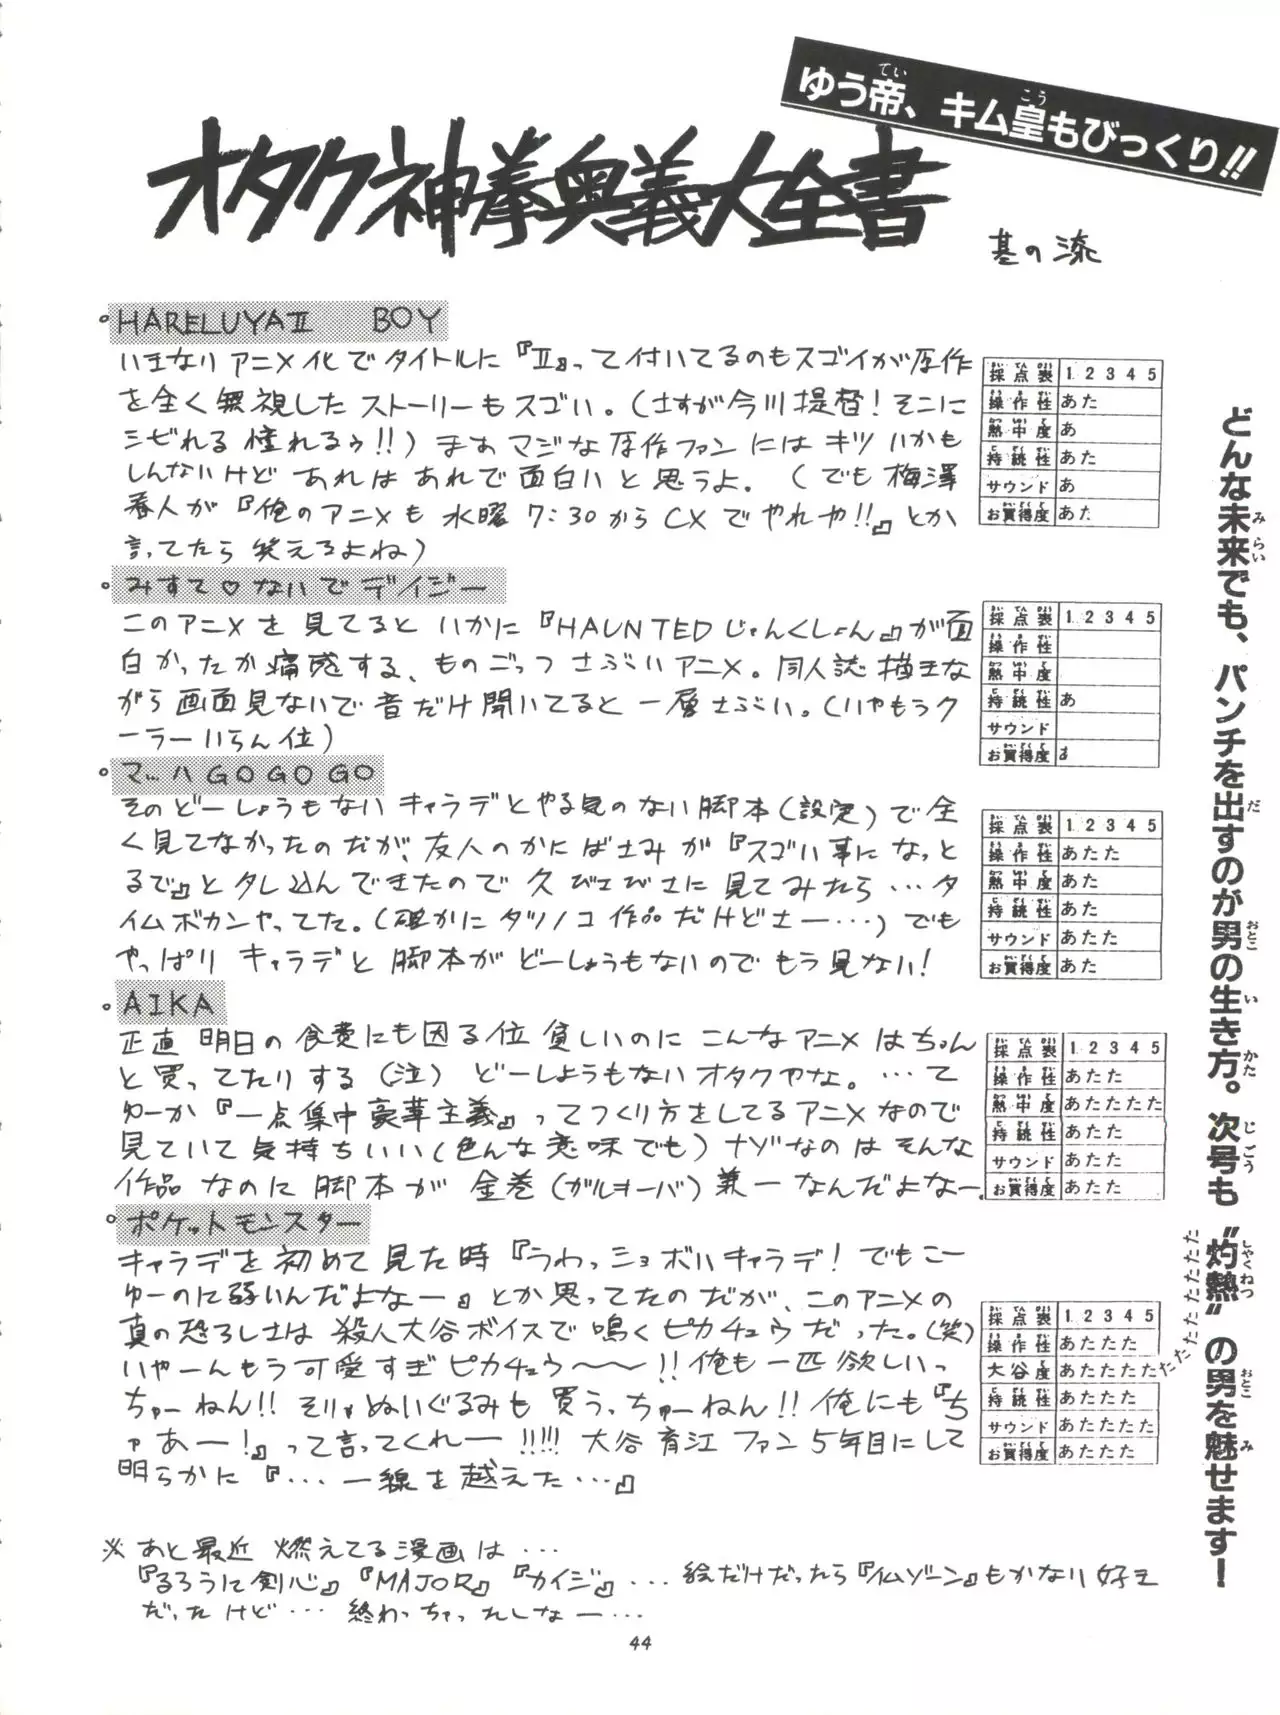 ゆう帝、キム皇もびっくり!!
オタク神拳奥義大全書
基の流
HARELUYAⅡ BOY
いきなりアニメ化でタイトルに『Ⅱ』って付いてるのもスゴイが原作
を全く無視したストーリーもスゴい。(さすが今川提督!そこに
シビれる憧れるゥ!!)まあマジな原作ファンにはキツいかも
しんないけどあれはあれで面白いと思うよ。(でも梅澤
春人が『俺のアニメも水曜7:30からCXでやれや!!』とか
言ってたら笑えるよね)
採点表 1 2 3 4 5
操作性 あた
熱中度 あ
持続性 あた
サウンド あ
お買得度 あた
みすて♡ないでデイジー
このアニメを見てるといかに『HAUNTEDじゃんくしょん』が面
白かったか痛感する、ものごっつさぶいアニメ。同人誌描きな
がら画面見ないで音だけ聞いてると一層さぶい。(いやもうク
ーラーいらん位)
採点表 1 2 3 4 5
操作性
熱中度
持続性 あ
サウンド
お買得度 あ
マッハGOGOGO
そのどーしょうもないキャラデとやる気のない脚本(設定)で全
く見てなかったのだが、友人のかにばさみが『スゴい事になっと
るで』とタレ込んできたので久びさびさに見てみたら…タ
イムボカンやってた。(確かにタツノコ作品だけどさー…)でも
やっぱりキャラデと脚本がどーしょうもないのでもう見ない!
採点表 1 2 3 4 5
操作性 あたた
熱中度 あた
持続性 あた
サウンド あたた
お買得度 あた
AIKA
正直明日の食費にも困る位貧しいのにこんなアニメはちゃん
と買ってたりする(泣)どーしようもないオタクやな。…て
ゆーか『一点集中豪華主義』ってつくり方をしてるアニメなので
見ていて気持ちいい(色んな意味でも)ナゾなのはそんな
作品なのに脚本が金巻(ガルキーバ)兼一なんだよなー。
採点表 1 2 3 4 5
操作性 あたた
熱中度 あたたたた
持続性 あたた
サウンド あたた
お買得度 あたた
ポケットモンスター
キャラデを初めて見た時『うわっショボいキャラデ!でもこー
ゆーのに弱いんだよなー』とか思ってたのだが、このアニメの
真の恐ろしさは殺人大谷ボイスで鳴くピカチュウだった。(笑)
いやーんもう可愛すぎピカチュウ〜〜!!俺も一匹欲しいっ
ちゅーねん!!そりゃぬいぐるみも買うっちゅーねん!!俺にも『ち
ァあー!』って言ってくれー!!!!!大谷育江ファン5年目にして
明らかに『…一線を越えた…』
採点表 1 2 3 4 5
操作性 あたたた
大谷度 あたたたたたたたたたたたたた
持続性 あたたた
サウンド あたたたた
お買得度 あたたた
※あと最近燃えてる漫画は…
『るろうに剣心』『MAJOR』『カイジ』…絵だけだったら『仏ゾーン』もかなり好き
だったけど…終わっちゃったしなー…
どんな未来でも、パンチを出すのが男の生き方。次号も“灼熱”の男を魅せます!
44